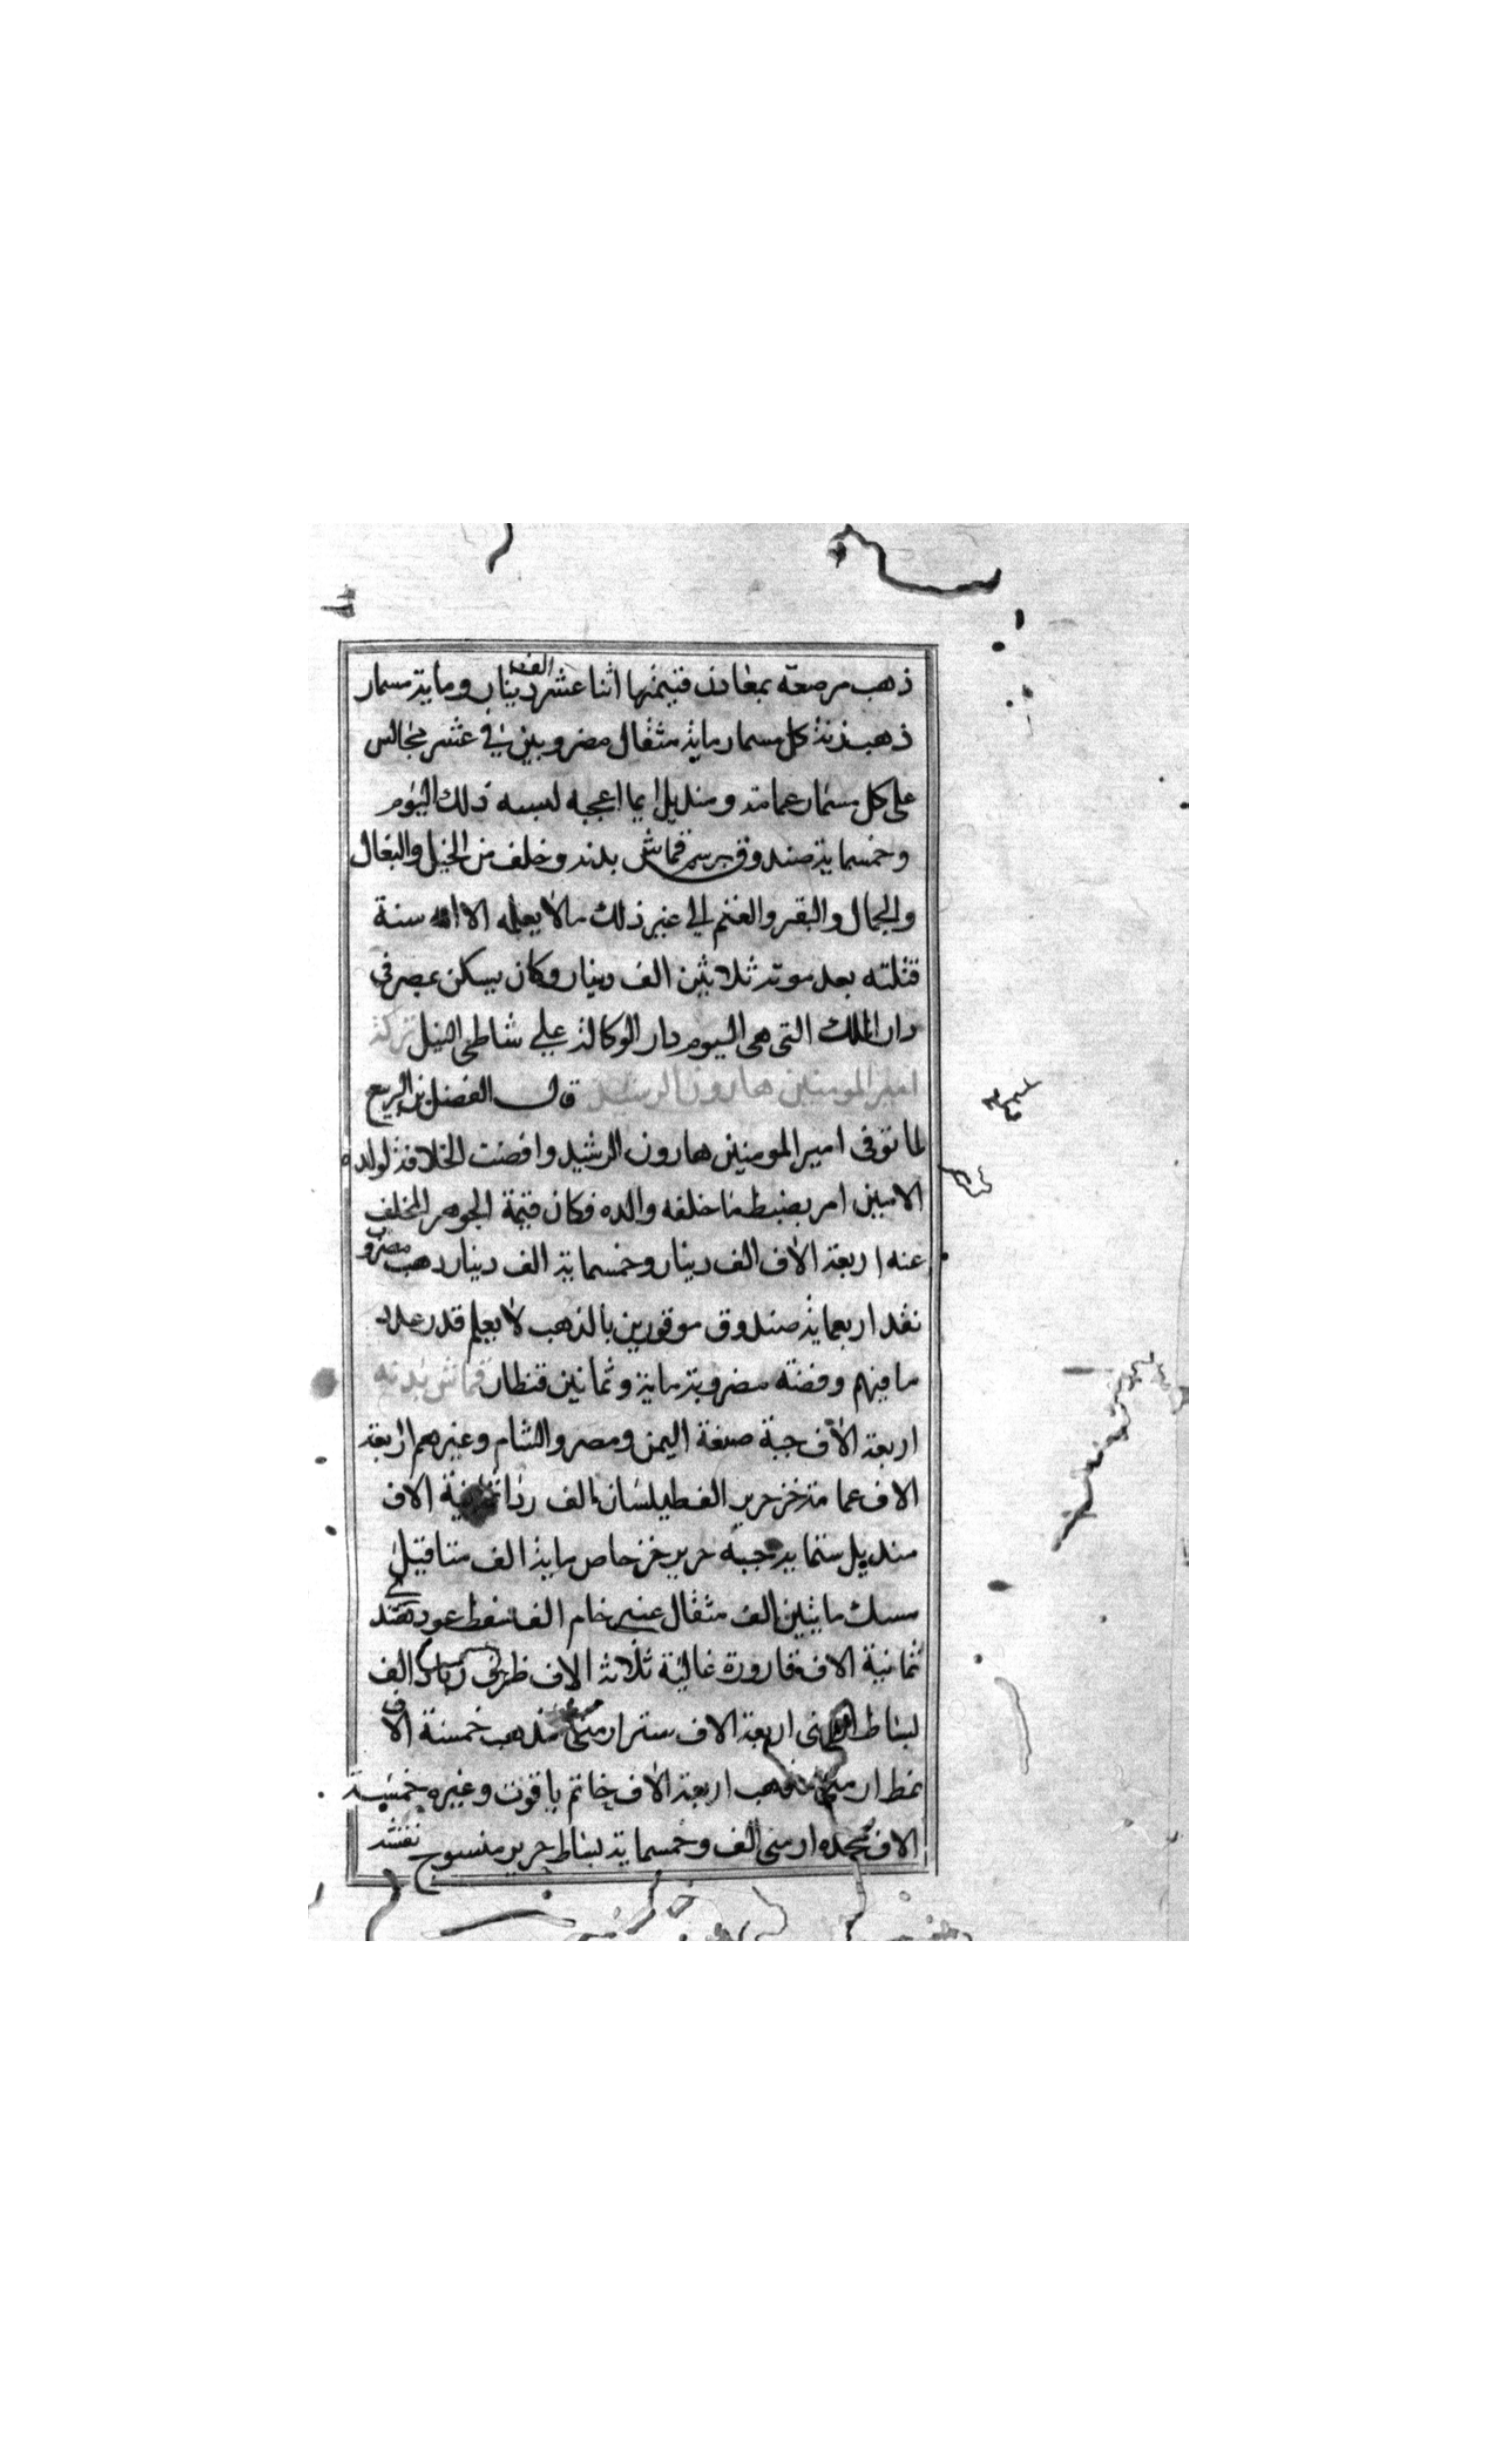 ذهب مرصعة بمعادن قيمتها اثنا عشر الف دينار وماية مسمار
ذهب زنة كل مسمار ماية مثقال مضروبين في عشر مجالس
على كل مسمار عمامة ومنديل ايما اعجبه لبسه ذلك اليوم
وخمسماية صندوق برسم قماش بدنه وخلف من الخيل والبغال
والجمال والبقر والغنم الى غير ذلك مالا يعلمه الا الله سنة
قتلته بعد موته ثلاثين الف دينار وكان يسكن بمصر في
دار الملك التي هي اليوم دار الوكالة على شاطى النيل تركة
امير المومنين هارون الرشيد قال الفضل بن الربيع
لما توفى امير المومنين هارون الرشيد وافضت الخلافة لولده
الامين امر بضبط ما خلفه والده فكان قيمة الجوهر المخلف
عنه اربعة الاف الف دينار وخمسماية الف دينار ذهب مضرو
نقد اربعماية صندوق موقورين بالذهب لا يعلم قدر عدد
ما فيهم وفضة مضروبة ماية وثمانين قنطار قماش بدنه
اربعة الاف جبة صبغة اليمن ومصر والشام وغيرهم اربعة
الاف عمامة خز حرير الف طيلسان الف ردا ثمانية الاف
منديل ستماية جبة حرير خز خاص ماية الف متاقيل
مسك مايتين الف مثقال عنبر خام الف سفط عود هندي
ثمانية الاف قارورة غالية ثلاثة الاف ظرف الف
بساط اربعة الاف ستر ارمني مذهب خمسة الاف
نمط ارمني مذهب اربعة الاف خاتم ياقوت وغيره خمسة
الاف مخده ارمني الف وخمسماية بساط حرير منسوج نقشه